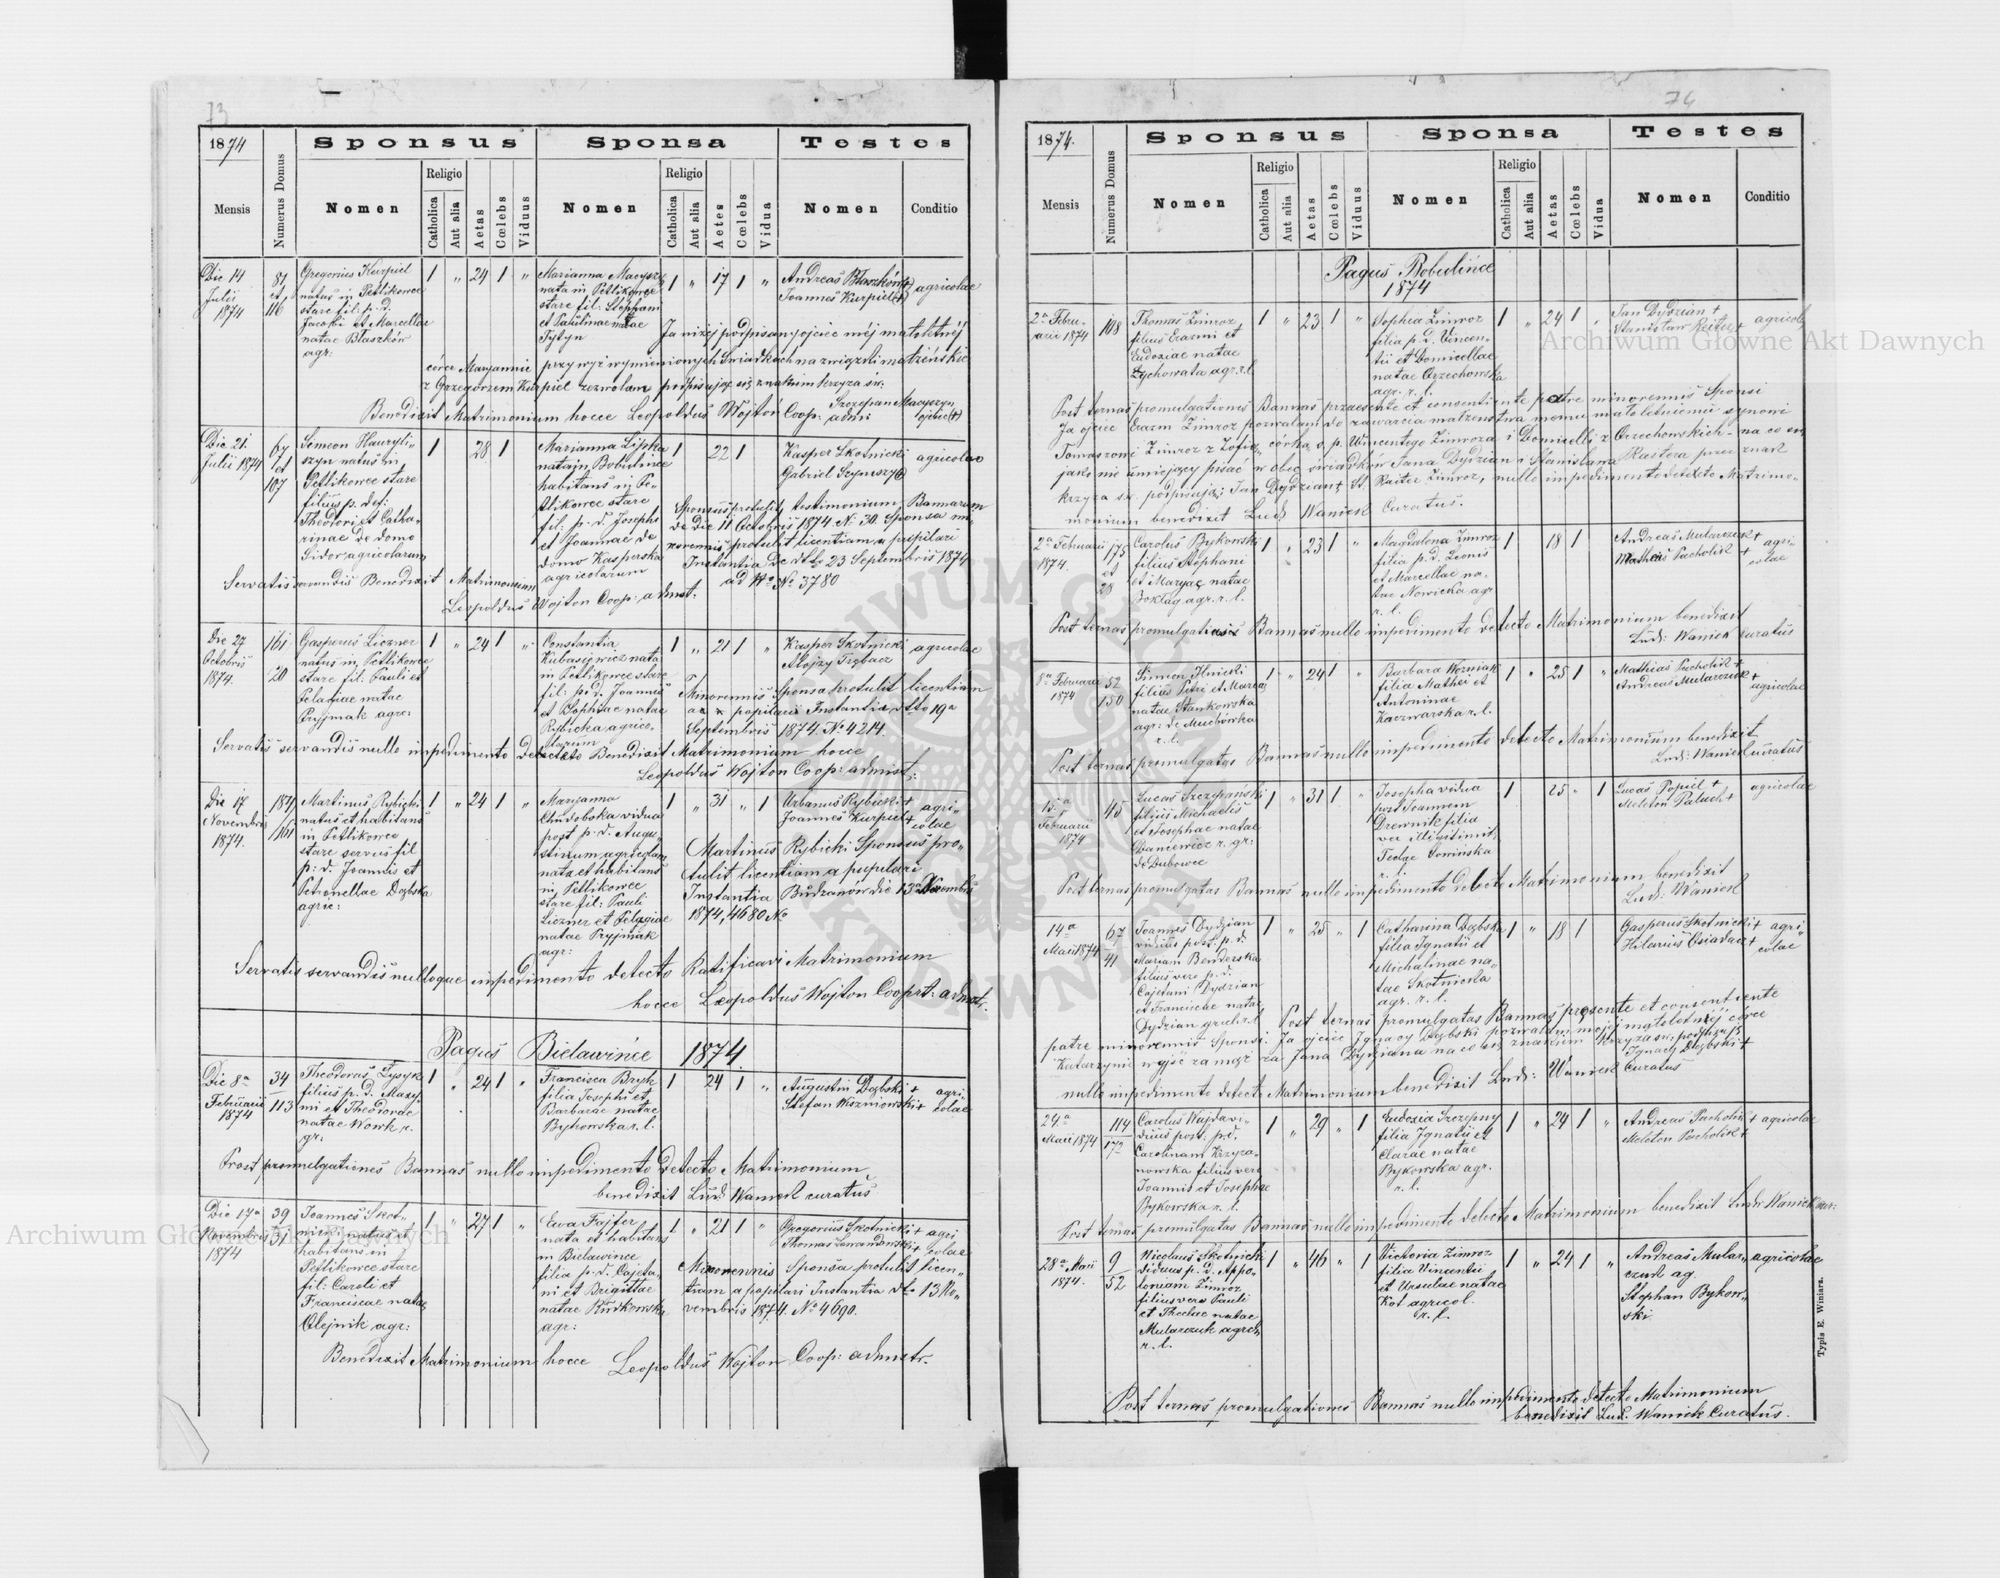 73
1874
Sponsus
Sponsa
Testes
Mensis
Numerus Domus
Nomen
Religio
Catholica
Aut alia
Aetas
Cœlebs
Viduus
Nomen
Religio
Catholica
Aut alia
Aetes
Cœlebs
Vidua
Nomen
Conditio
Die 14
Julii
1874
87
et
116
Gregorius Kurpiel
natus in Petlikowce
stare fil: p. d.
Jacobi et Marcellae
natae Błaszków
agr:
1 „ 24 1 „
Marianna Macyszyn
nata in Petlikowce
stare fil. Stephani
et Paulinae natae
Tytyn
1 „ 17 1 „
Andreas Błaszków(+)
Joannes Kurpiel(+)
agricolae
Ja niżej podpisany ojciec mej małoletniéj
córce Maryannie przy wyż wymienionych świadkach na związki małżeńskie
z Grzegorzem Kurpiel zezwalam, podpisując się znakiem krzyża św.
Szczepan Macyszyn
ojciec(+)
Benedixit Matrimonium hocce Leopoldus Wojton Coop: adm:
Die 21.
Julii 1874
67
et
107
Simeon Hauryli-
szyn natus in
Petlikowce stare
filius p. def:
Theodori et Catha-
rinae de domo
Sidor, agricolarum
1 28 1
Marianna Lipka
nata in Bobulince
habitans in Pe-
tlikowce stare
fil: p. d. Josephi
et Joannae de
domo Kasperska
agricolarum
1 22 1
Kasper Skotnicki
Gabriel Szynszy
agricolae
Sponsus protulit testimonium Bannarum
de die 11 Octobris 1874. N. 30. Sponsa mi-
norennis protulit licentiam a pupilari
Instantia de dtto 23 Septembris 1874
ad No 3780
Servatis servandis Benedixit Matrimonium
Leopoldus Wojton Coop: admst.
Die 27
Octobris
1874.
161
20
Gasperus Liczner
natus in Petlikowce
stare fil: Pauli et
Pelagiae natae
Pryjmak agr:
1 „ 24 1 „
Constantia
Kubasiewicz nata
in Petlikowce stare
fil: p. d. Joannis
et Sophiae natae
Rybicka agrico-
larum
1 „ 21 1 „
Kasper Skotnicki
Alojzy Trębacz
agricolae
Minorennis Sponsa protulit licentiam
a pupilari Instantia dtto 19a
Septembris 1874. No 4214.
Servatis servandis nullo impedimento detecto Benedixit Matrimonium hocce
Leopoldus Wojton Coop: admist:
Die 17
Novembris
1874.
187
161
Martinus Rybicki
natus et habitans
in Petlikowce
stare servus fil.
p. d. Joannis et
Petronellae Dąbska
agric:
1 „ 24 1 „
Maryanna
Chudobska vidua
post p. d. Augu-
stinum, agricolam
nata et habitans
in Petlikowce
stare fil: Pauli
Liczner et Pelagiae
natae Pryjmak
agr:
1 „ 31 „ 1
Urbanus Rybicki +
Joannes Kurpiel +
agri-
colae
Martinus Rybicki Sponsus pro-
tulit licentiam a pupilari
Instantia Budzanów die 13a Novembris
1874, 4680 No
Servatis servandis nulloque impedimento detecto Ratificavi Matrimonium
hocce Leopoldus Wojton Coop: admstr.
Pagus Bielawińce 1874.
Die 8a
Februarii
1874
34
113
Theodorus Łysyk
filius p. d. Maxy-
mi et Theodorae
natae Wowk r.
gr:
1 „ 24 1 „
Francisca Bzyk
filia Josephi et
Barbarae natae
Bykowska r. l.
1 24 1 „
Augustin Dąbski +
Stefan Wiszniowski +
agri-
colae
Post promulgationes Bannas nullo impedimento detecto Matrimonium
benedixit Lud: Waniek curatus
Die 17a
Novembris
1874
39
31
Joannes Skot-
nicki natus et
habitans in
Petlikowce stare
fil: Caroli et
Franciscae natae
Olejnik agr:
1 „ 27 1 „
Ewa Fajfer
nata et habitans
in Bielawince
filia p. d. Cajeta-
ni et Brigittae
natae Rudkowska
agr:
1 „ 21 1 „
Gregorius Skotnicki +
Thomas Lewandowski +
agri
colae
Minorennis Sponsa protulit licen-
tiam a pupilari Instantia dto 13 No-
vembris 1874. No 4690.
Benedixit Matrimonium hocce Leopoldus Wojton Coop: admstr.
74
1874.
Sponsus
Sponsa
Testes
Mensis
Numerus Domus
Nomen
Religio
Catholica
Aut alia
Aetas
Cœlebs
Viduus
Nomen
Religio
Catholica
Aut alia
Aetas
Cœlebs
Vidua
Nomen
Conditio
Pagus Bobulińce
1874
2a Febru-
arii 1874
108
Thomas Zimroz
filius Erasmi et
Eudoxiae natae
Żychowata agr. r. l.
1 „ 23 1 „
Sophia Zimroz
filia p. d. Vincen-
tii et Domicellae
natae Orzechowska
agr. r. l.
1 „ 24 1 „
Jan Dydzian +
Stanisław Reiter +
agricolae
Post ternas promulgationes Bannas praesente et consentiente patre minorennis Sponsi
Ja ojciec Erazm Zimroz pozwalam do zawarcia małżeństwa memu małoletniemu synowi
Tomaszowi Zimroz z Zofią, córką ś. p. Wincentego Zimroza i Domicelli z Orzechowskich - na co się
jako nie umiejący pisać w obec świadków Jana Dydzian i Stanisława
krzyża św. podpisuję; Jan Dydzian + St. Reiter Zimroz, nullo impedimento detecto Matrimo-
monium benedixit Lud: Waniek Curatus.
2a Februarii
1874.
175
et
28
Carolus Bykowski
filius Stephani
et Maryae natae
Boktag agr. r. l.
1 „ 23 1 „
Magdalena Zimroz
filia p. d. Leonis
et Marcellae na-
tae Nowicka agr
r. l.
1 18 1
Andreas Mularczuk +
Matheus Pacholik +
agri-
colae
Post ternas promulgationes Bannas nullo impedimento detecto Matrimonium benedixit
Lud: Waniek curatus
8a Februarii
1874
52
150
Simeon Hnicki
filius Petri et Maria
natae Stankowska
agr: de Muchówka
r. l.
1 „ 24 1 „
Barbara Woźniak
filia Mathei et
Antoninae
Kaczwarska r. l.
1 „ 25 1 „
Mathias Pacholik +
Andreas Mularczuk +
agricolae
Post ternas promulgatas Bannas nullo impedimento detecto Matrimonium benedixit
Lud: Waniek curatus
15a
Februarii
1874
45
Lucas Szczepański
filius Michaelis
et Josephae natae
Daniewicz r. gr:
de Dubowce
1 „ 31 1 „
Josepha vidua
post Joannem
Drewnik filia
ver. illigitimit:
Teclae Domińska
r. l.
1 25 „ 1
Lucas Popiel +
Meleton Paluch +
agricolae
Post ternas promulgatas Bannas nullo impedimento detecto Matrimonium benedixit
Lud: Waniek
14a
Maii 1874
67
41
Joannes Dydzian
viduus post. p. d.
Mariam Benderska
filius vero p. d.
Cajetani Dydzian
et Franciscae natae
Dydzian gr. cl. r. l.
1 „ 25 „ 1
Catharina Dąbska
filia Ignatii et
Michalinae na-
tae Skotnicka
agr. r. l.
1 „ 18 1
Gasperus Skotnicki +
Hilarius Osiadacz +
agri-
colae
Post ternas promulgatas Bannas presente et consentiente
patre minorennis Sponsi. Ja ojciec Ignacy Dąbski pozwalam mojej małoletniéj córce
Katarzynie wyjść za mąż za Jana Dydziana na co się znakiem krzyża św. podpisuję
Ignacy Dąbski +
nullo impedimento detecto Matrimonium benedixit Lud: Waniek Curatus
24a
Maii 1874
114
172
Carolus Wajda vi-
duus post. p. d.
Carolinam Krzyża-
nowska filius vero
Joannis et Josephae
Bykowska r. l.
1 „ 29 „ 1
Eudoxia Szczepny
filia Ignatii et
Clarae natae
Bykowska agr.
r. l.
1 „ 24 1 „
Andreas Pacholik +
Meleton Pacholik +
agricolae
Post ternas promulgatas Bannas nullo impedimento detecto Matrimonium benedixit Lud: Waniek cur:
28a Maii
1874.
9
52
Nicolaus Skotnicki
viduus p. d. Appo-
loniam Zimroz
filius vero Pauli
et Theclae natae
Mularczuk agrch
r. l.
1 „ 46 „ 1
Victoria Zimroz
filia Vincentii
et Ursulae natae
Kot agricol.
r. l.
1 „ 24 1 „
Andreas Mular-
czuk ag
Stephan Bykow-
ski
agricolae
Post ternas promulgationes Bannas nullo impedimento detecto Matrimonium
benedixit Lud: Waniek Curatus.
Typis E. Winiarz.
Archiwum Główne Akt Dawnych
Archiwum Główne Akt Dawnych